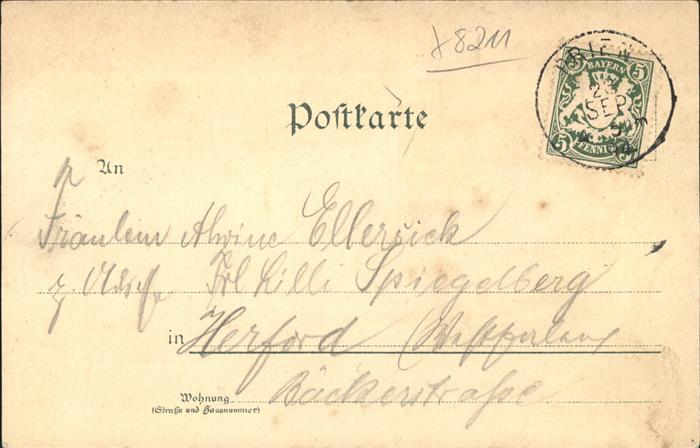 8211
PRIEN
5 BAYERN 5
SEP
5 PFENNIG 5
Postkarte
An
Fräulein Alwine Ellersick
z. Frl Lilli Spiegelberg
in Herford (Westfalen)
Wohnung
Bäckerstraße
(Straße und Hausnummer)